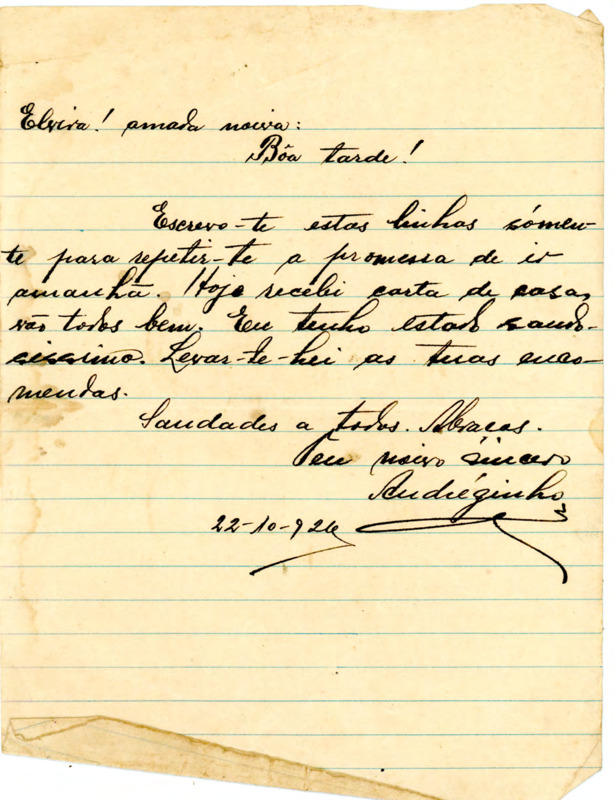 Elvira! amada noiva:
Bôa tarde!
Escrevo-te estas linhas sómen-
te para repetir-te a promessa de ir
amanhã. Hoje recebi carta de casa,
vão todos bem. Eu tenho estado saudo-
sissimo. Levar-te-hei as tuas enco-
mendas.
Saudades a todos. Abraços.
Teu noivo sincero
Andréginho
22-10-926